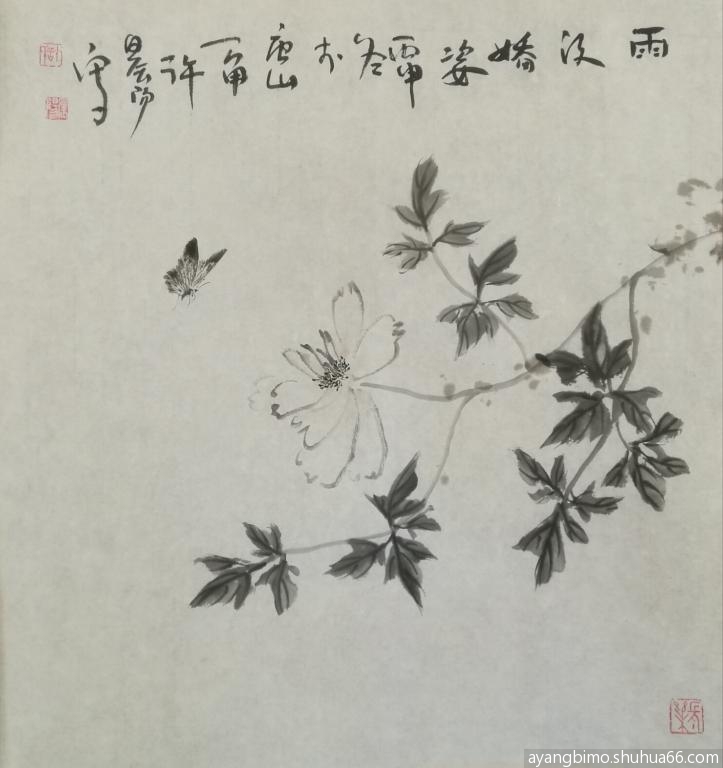 雨後嬌姿丙申冬於唐山一角许晨陽寫
ayangbimo.shuhua66.com